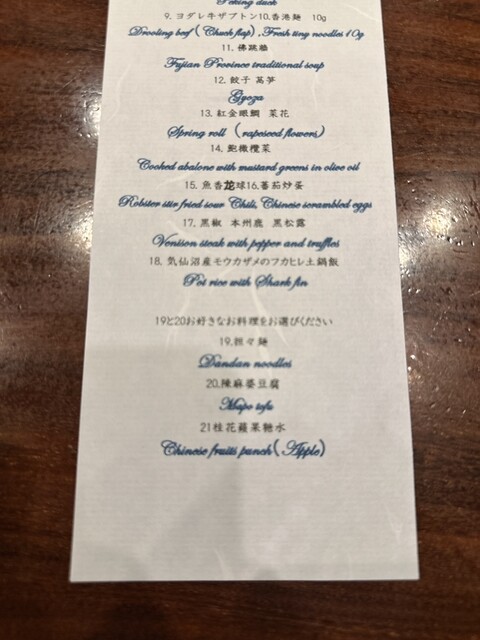 Peking duck
9. ヨダレキザブトン10.香港麺 10g
Drooling beef (Chuck flap) .Fresh tiny noodles 10g
11. 佛跳牆
Fujian Province traditional soup
12. 餃子 萵笋
Gyoza
13. 紅金眼鯛 菜花
Spring roll (rapeseed flowers)
14. 鮑橄欖菜
Cooked abalone with mustard greens in olive oil
15. 魚香龙球16.蕃茄炒蛋
Robster stir fried sour Chili, Chinese scrambled eggs
17. 黒椒 本州鹿 黒松露
Venison steak with pepper and truffles
18. 気仙沼産モウカザメのフカヒレ土鍋飯
Pot rice with Shark fin
19と20お好きなお料理をお選びください
19.担々麺
Dandan noodles
20.陳麻婆豆腐
Mapo tofu
21桂花蘋果糖水
Chinese fruits punch (Apple)